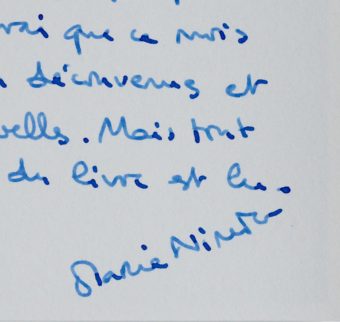 vrai que ce mois
découvenues et
velles. Mais tout
du livre est lu.
Marie Nimier